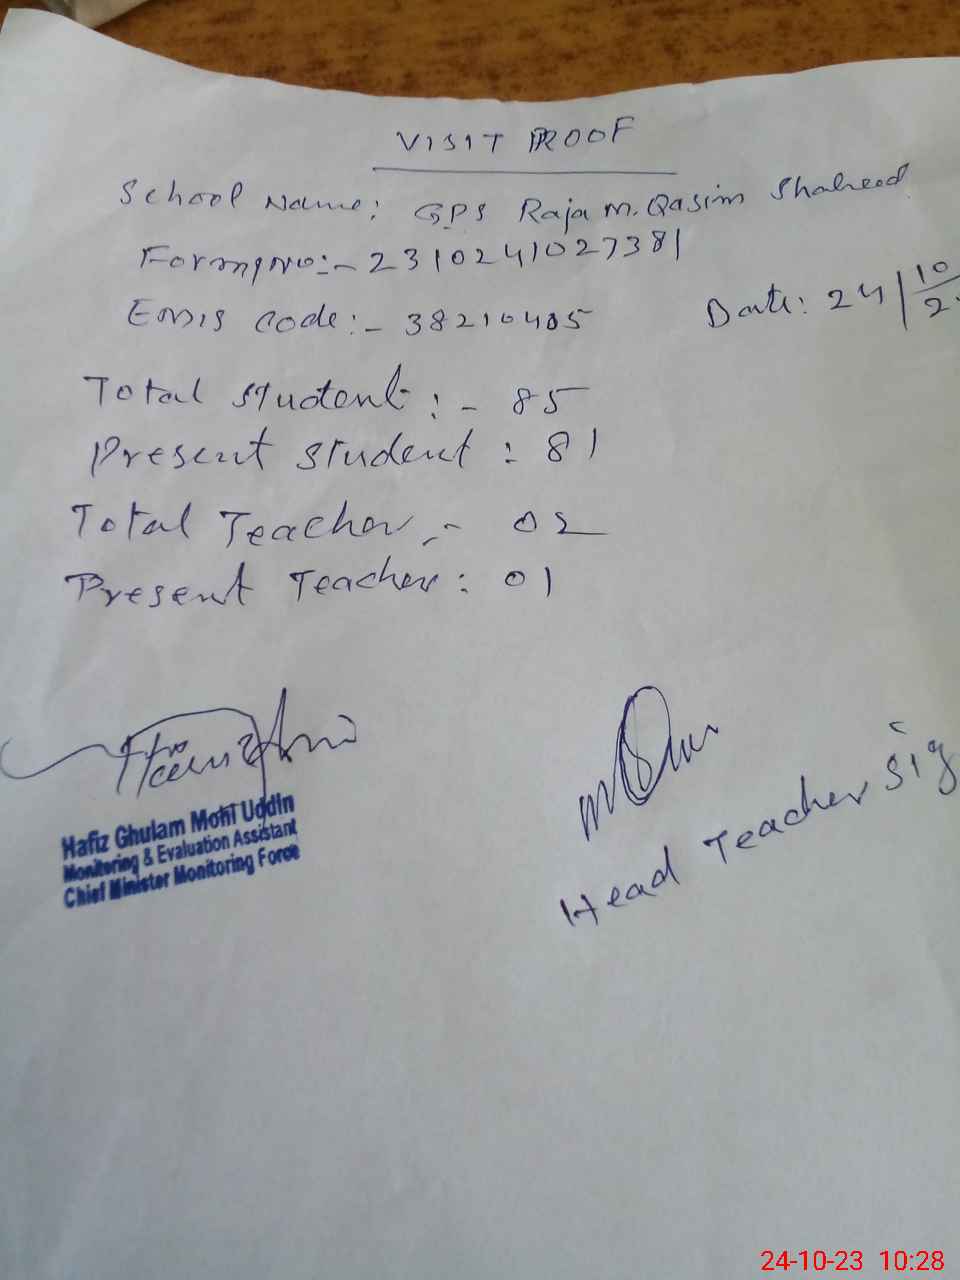 VISIT PROOF
School Name: GPS Raja M. Qasim Shaheed
Formno:- 2310241027381
Emis code:- 38210405
Date: 24/10/2
Total student:- 85
Present student: 81
Total Teacher,- 02
Present Teacher: 01
Hafiz Ghulam Mohi Uddin
Monitoring & Evaluation Assistant
Chief Minister Monitoring Force
Head Teacher Sig
24-10-23 10:28